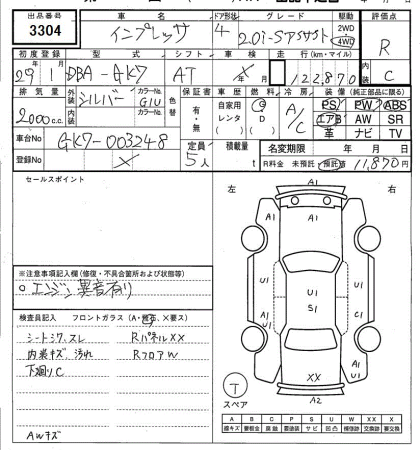 出品番号 車名 ドア形状 グレード 駆動 評価点
3304 インプレッサ 4 2.0i-Sアイサイト 2WD 4WD R
初度登録 型式 シフト 車検 走行(km・マイル) 内装
29年1月 DBA-GK7 AT × 122,870 C
排気量 外装 シルバー カラーNo. G1U 色替 保証書 車歴 燃料 冷房 装備(純正部品に限る)
2000c.c. 内装 カラーNo. 有・無 自家用 レンタ G D A/C PS PW ABS
エアB AW SR
革 ナビ TV
車台No GK7-003248 定員 5人 積載量 t 名変期限 年 月 日
登録No × R料金 未預託 預託済 11,870円
セールスポイント
左 右
A1
A1 A1
U1 U1 U1
S1
A1 A1
U1
XX
A2
T
スペア
※注意事項記入欄(修復・不具合箇所および状態等)
○エンジン異音有り
検査員記入 フロントガラス(A・飛石、×要ス)
シートシワ、スレ RパネルXX
内装キズ、汚れ RフロアW
下廻りC
AWキズ
A B C P S U W X XX
線キズ 要板金 腐蝕 要塗装 サビ 凹凸 補修跡 交換跡 要交換